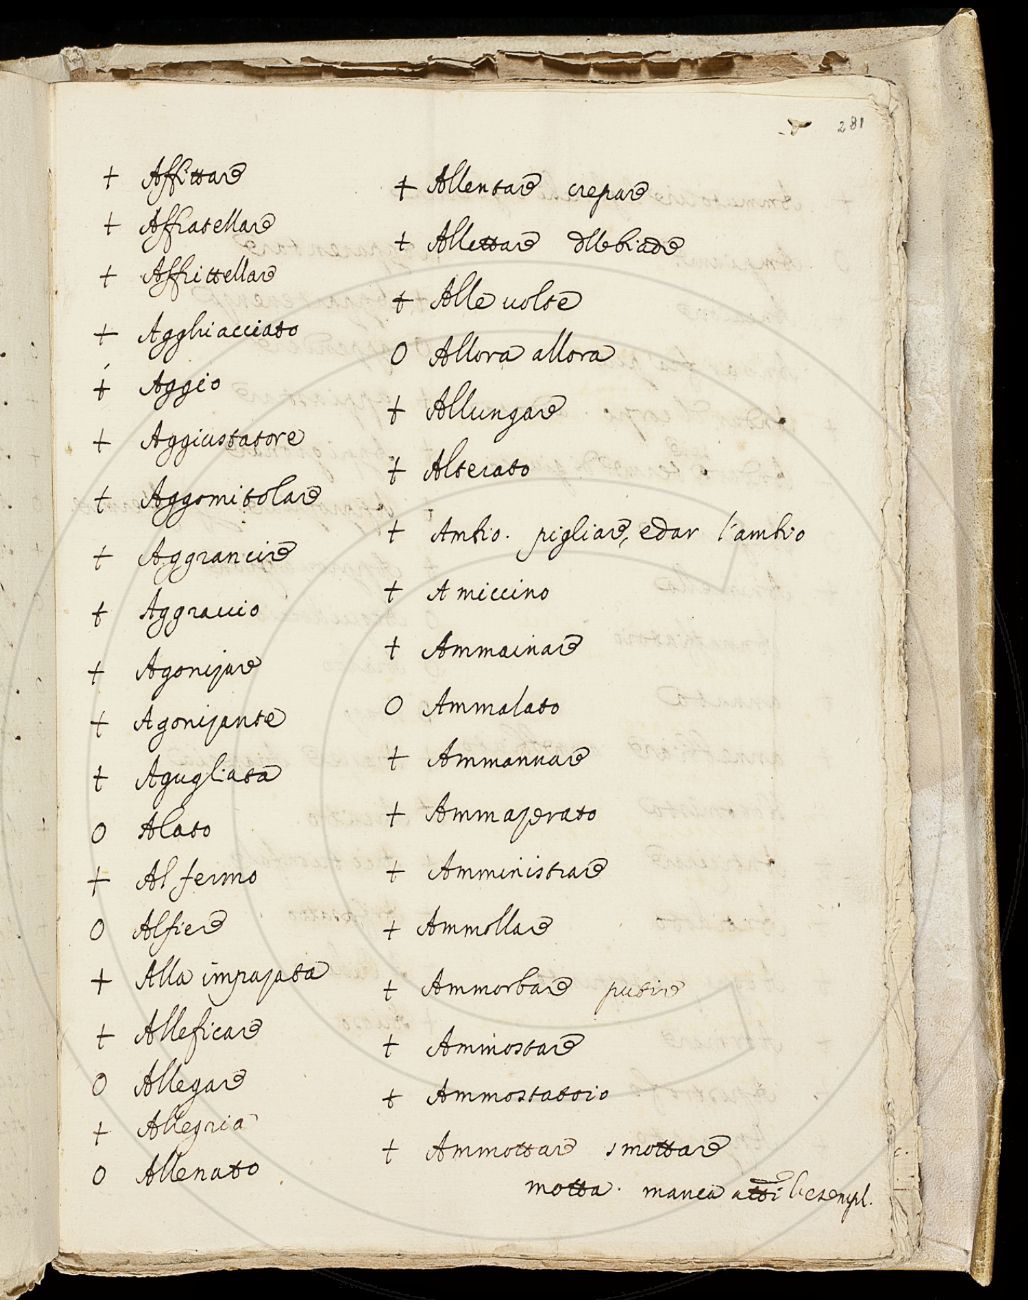 281
+ Affittare
+ Affratellare
+ Affrittellare
+ Agghiacciato
+ Aggio
+ Aggiustatore
+ Aggomitolare
+ Aggrancire
+ Aggravio
+ Agonizare
+ Agonizante
+ Agugliata
O Alato
+ Al fermo
O Alfiere
+ Alla impazata
+ Alleficare
O Allegare
+ Allegria
O Allenato
+ Allentare crepare
+ Allettare
+ Alle uolte
O Allora allora
+ Allungare
+ Alterato
+ Ambio. pigliare, e dar l'ambio
+ A miccino
+ Ammainare
O Ammalato
+ Ammannare
+ Ammazerato
+ Amministrare
+ Ammollare
+ Ammorbare putire
+ Ammostare
+ Ammostatoio
+ Ammottare smottare
motta. manca